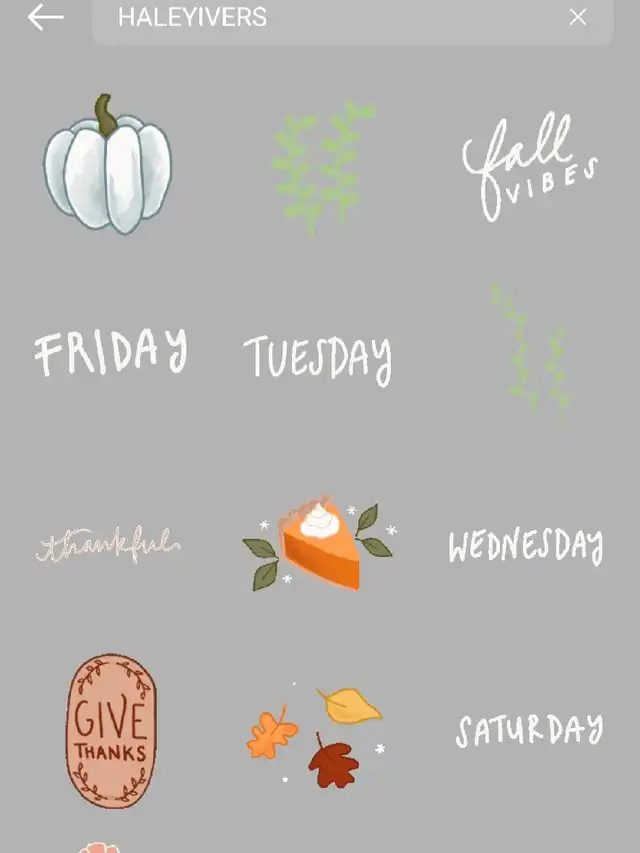 HALEYIVERS
fall
VIBES
FRIDAY
TUESDAY
thankful
WEDNESDAY
GIVE
THANKS
SATURDAY